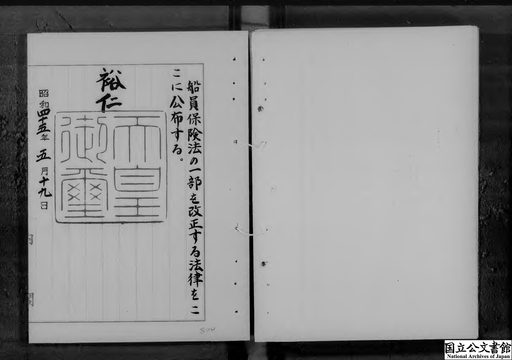 船員保険法の一部を改正する法律をこ
こに公布する。
裕仁
天皇
御璽
昭和四十五年五月十九日
国立公文書館
National Archives of Japan